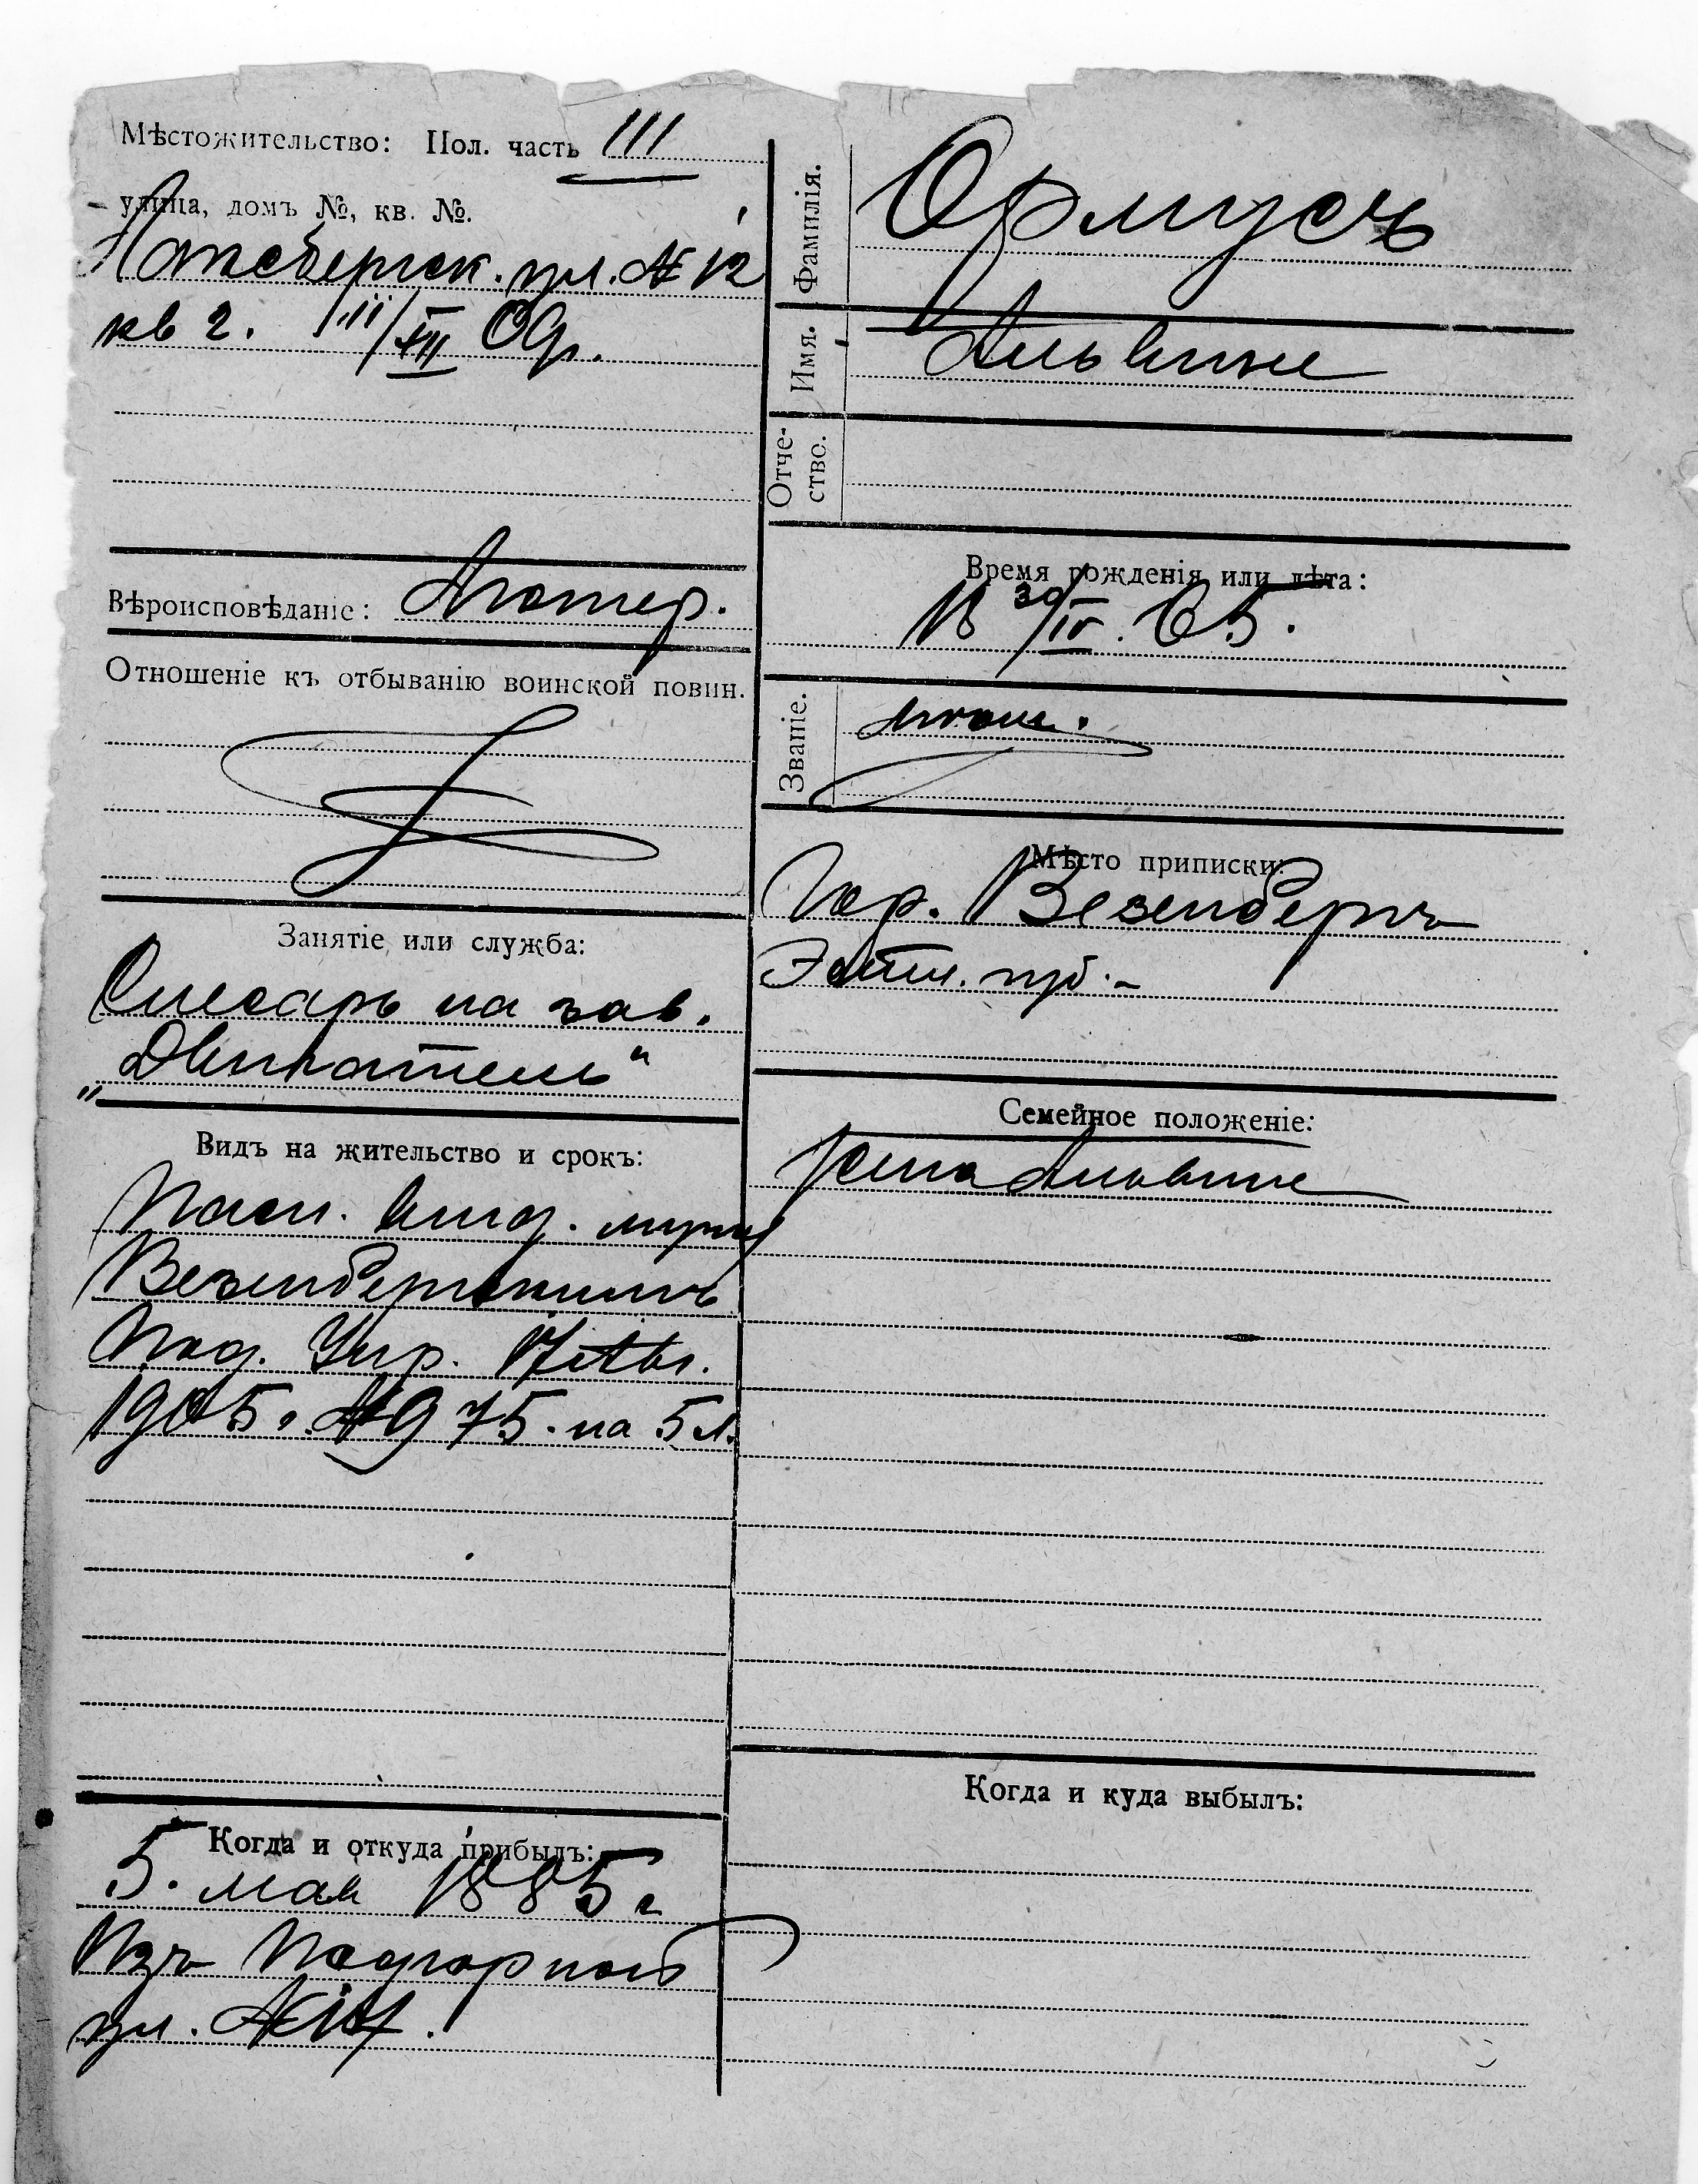 Мѣстожительство: Пол. часть III
улица, домъ №, кв. №.
ул. № 12
кв 2.
Вѣроисповѣданіе: Лютер.
Отношеніе къ отбыванію воинской повин.
Занятіе или служба:
Слесарь на зав.
„Двигатель“
Видъ на жительство и срокъ:
Пасп. выд. мужу
Везенбергскимъ
Гор. Упр.
1905 г. № 975. на 5 л.
Когда и откуда прибылъ:
5. мая 1885 г
Изъ Нагорной
ул. №
Фамилія. Ормусъ
Имя. Альвине
Отче-
ство.
Время рожденія или лѣта:
30/IV. 65.
Званіе. мѣщ.
Мѣсто приписки:
Гор. Везенбергъ
Эстл. губ.
Семейное положеніе:
жена Альвине
Когда и куда выбылъ: